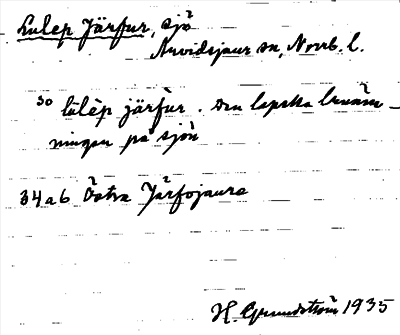 Lulep Järfur, sjö
Arvidsjaur sn, Norrb. l.
30 lūlēp järfùr. Den lapska benäm-
ningen på sjön
34a6 Östra Järfojaure
H. Grundström 1935